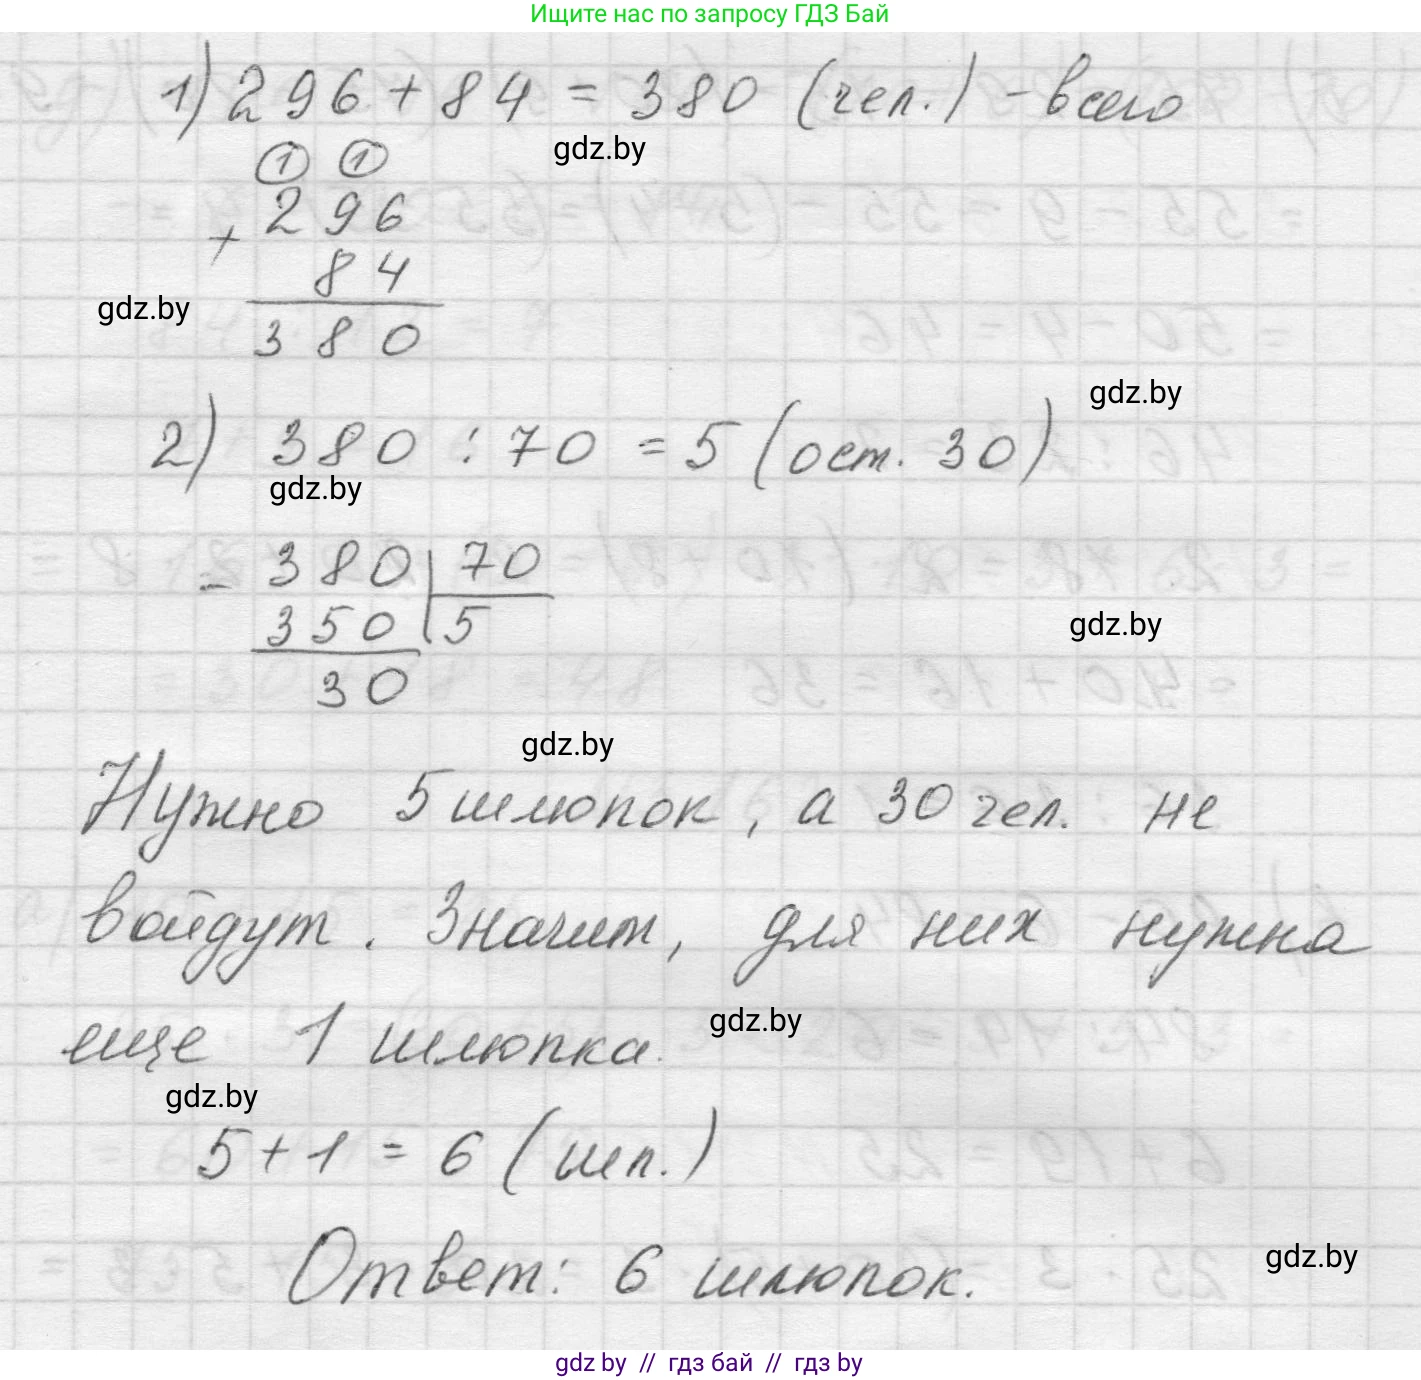 Ищите нас по запросу ГДЗ Бай
1) 296 + 84 = 380 (чел.) - всего
gdz.by
1 1
+ 296
84
gdz.by
380
gdz.by
2) 380 : 70 = 5 (ост. 30)
gdz.by
- 380 | 70
350 | 5
gdz.by
30
gdz.by
Нужно 5 шлюпок, а 30 чел. не
войдут. Значит, для них нужна
еще 1 шлюпка.
gdz.by
gdz.by
5 + 1 = 6 (шл.)
Ответ: 6 шлюпок.
gdz.by
gdz by // гдз бай // гдз by